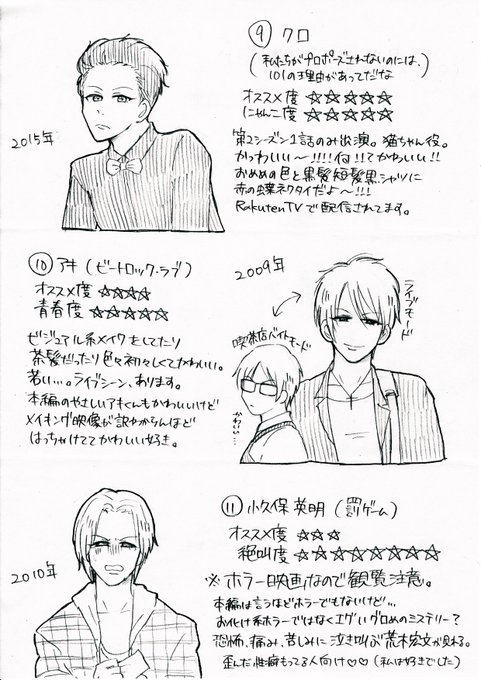 ⑨ クロ
(私たちがプロポーズされないのには、
101の理由があってだな)
オススメ度 ☆☆☆☆☆
にゃんこ度 ☆☆☆☆☆
2015年
第2シーズン1話のみ出演。猫ちゃん役。
かっわいい〜!!!!何!!てかわいい!!
おめめの色と黒髪短髪黒シャツに
赤の蝶ネクタイだよ〜!!!
RakutenTVで配信されてます。
⑩ アキ (ビートロック・ラブ)
オススメ度 ☆☆☆☆
青春度 ☆☆☆☆☆
ビジュアル系メイクをしてたり
茶髪だったり色々初々しくてかわいい。
若い...。ライブシーン、あります。
本編のやさしいアキくんもかわいいけど
メイキング映像が訳わからんほど
はっちゃけててかわいい好き。
2009年
ライブモード
喫茶店バイトモード
かわいい...
⑪ 小久保 英明 (罰ゲーム)
オススメ度 ☆☆☆
絶叫度 ☆☆☆☆☆☆☆
※ホラー映画なので観覧注意。
2010年
本編は言うほどホラーでもないけど...
お化け系ホラーではなくエグいグロめのミステリー?
恐怖、痛み、苦しみに泣き叫ぶ荒木宏文が見れる。
歪んだ性癖もってる人向け♡♡(私は好きでした)